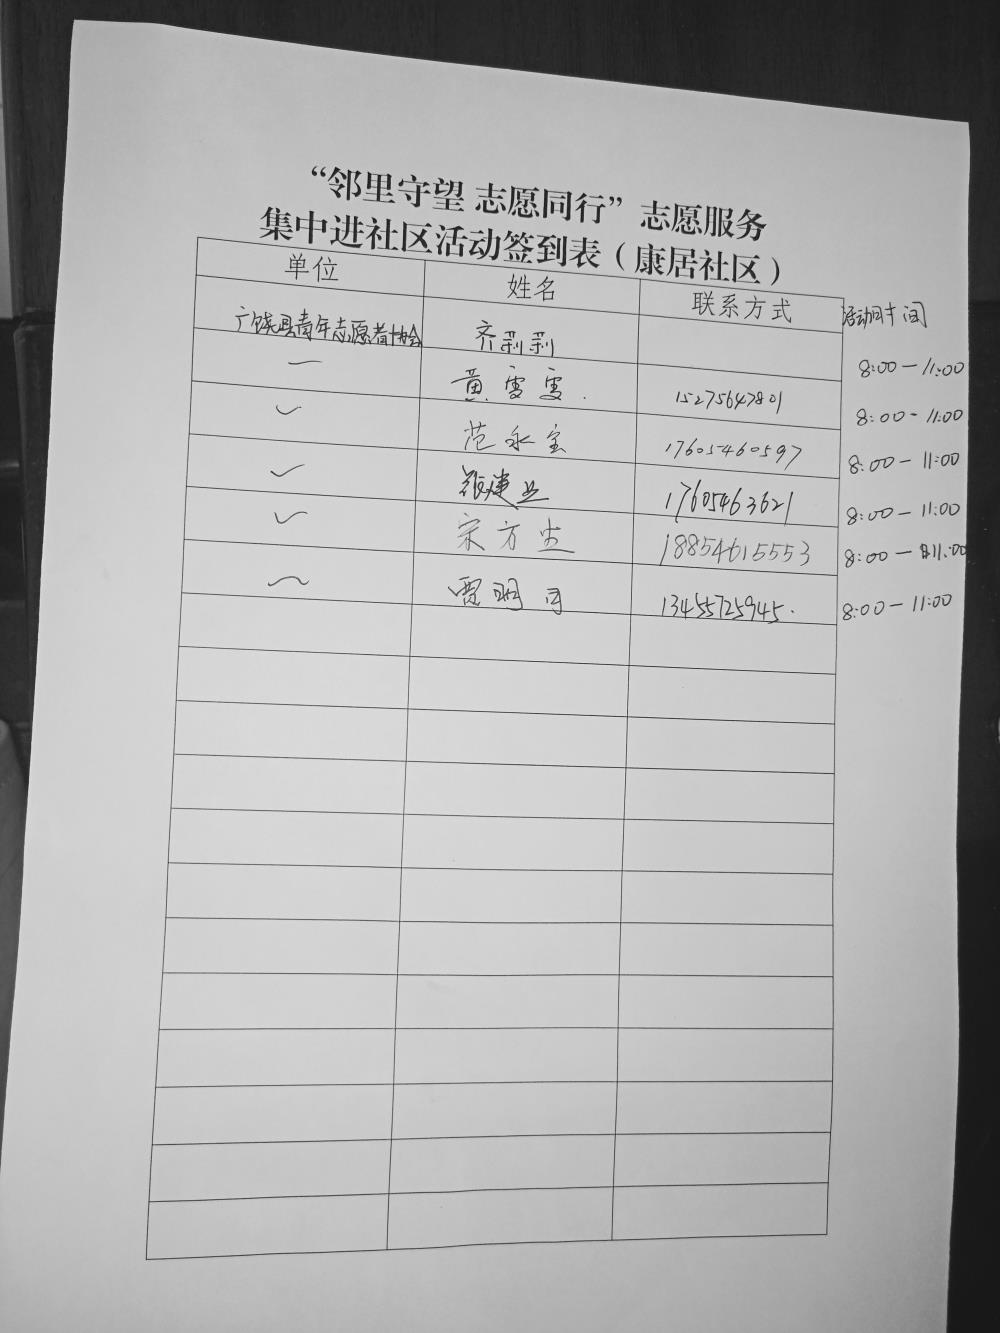 “邻里守望 志愿同行”志愿服务
集中进社区活动签到表（康居社区）
单位 姓名 联系方式 活动时间
广饶县青年志愿者协会 齐莉莉 8:00—11:00
黄雪雯 15275647801 8:00-11:00
范永宝 17605460597 8:00—11:00
张建业 17605463621 8:00—11:00
宋方生 18854615553 8:00—11:00
贾明月 13455725945. 8:00—11:00